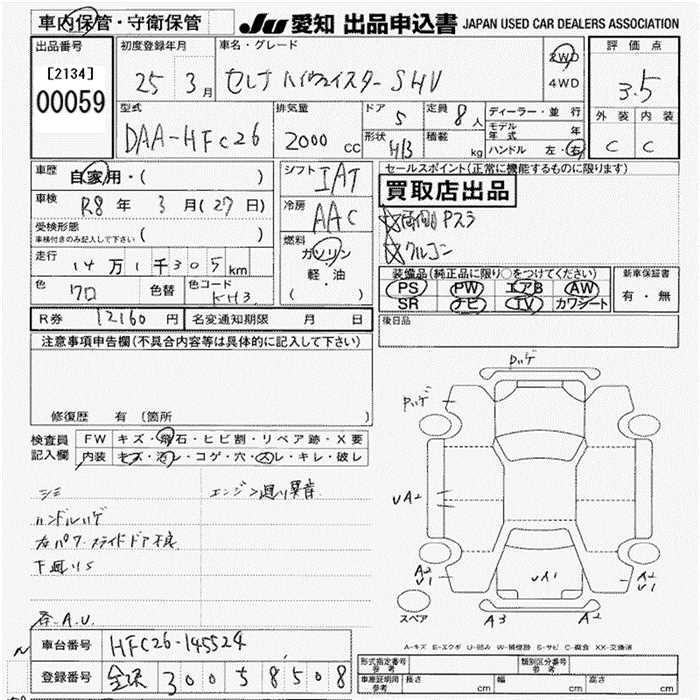 車内保管・守衛保管
JU 愛知 出品申込書 JAPAN USED CAR DEALERS ASSOCIATION
出品番号
[2134]
00059
初度登録年月
25 3月
車名・グレード
セレナ ハイウェイスターSHV
2WD
4WD
評価点
3.5
外装 内装
C C
型式
DAA-HFC26
排気量
2000 CC
ドア 5
形状 HB
定員 8人
積載 kg
ディーラー・並行
モデル年式 年
ハンドル 左・右
車歴 自家用・( )
車検 R8年 3月(27日)
受検形態
車検付きのみ記入して下さい ( )
走行 14万1千305km
色 クロ 色替 色コード KH3
シフト IAT
冷房 AAC
燃料
ガソリン
軽・油
( )
セールスポイント(正常に機能するものに限ります)
買取店出品
両側Pスラ
クルコン
装備品(純正品に限り○をつけてください)
PS PW エアB AW
SR ナビ TV カワシート
新車保証書
有・無
後日品
R券 12160円 名変通知期限 月 日
注意事項申告欄(不具合内容等は具体的に記入して下さい)
修復歴 有(箇所 )
検査員記入欄
FW キズ・飛石・ヒビ割・リペア跡・X要
内装 キズ・汚レ・コゲ・穴・スレ・キレ・破レ
シミ
ハンドルハゲ
右パワースライドドア不良
下廻りS
各A.U.
エンジン廻り異音
Pハゲ
Pハゲ
UA2
UA1
A2
U1
A2
U1
A3 A2
スペア
A-キズ E-エクボ U-凹み W-補修跡 S-サビ C-腐食 XX-交換済
車台番号 HFC26-145524
登録番号 金沢 300 5 8508
形式指定番号 参考
類別区分番号 参考
車庫証明用 参考 長さ cm 幅 cm 高さ cm